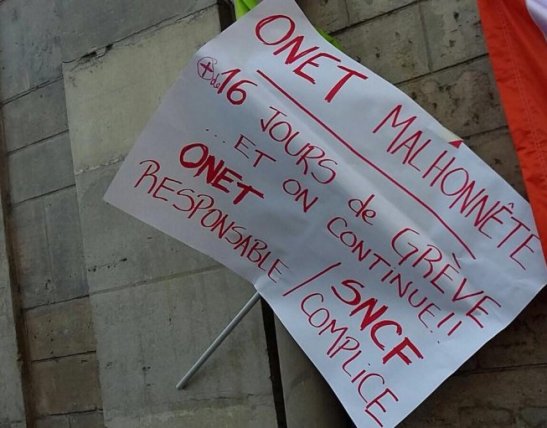 ONET MALHONNÊTE
⊕ de 16 JOURS de GRÈVE
... ET ON CONTINUE!!
ONET / SNCF
RESPONSABLE / COMPLICE